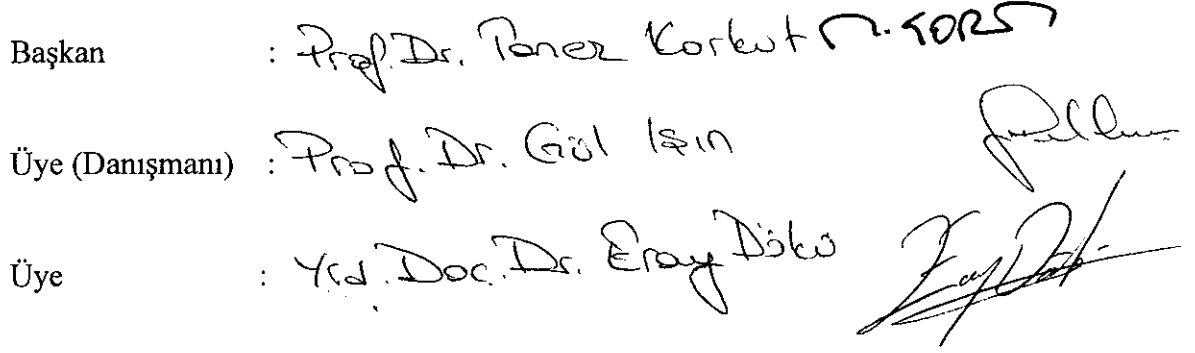 Başkan : Prof. Dr. Taner Korkut
Üye (Danışmanı) : Prof. Dr. Gül Işın
Üye : Yrd. Doç. Dr. Eray Dökü